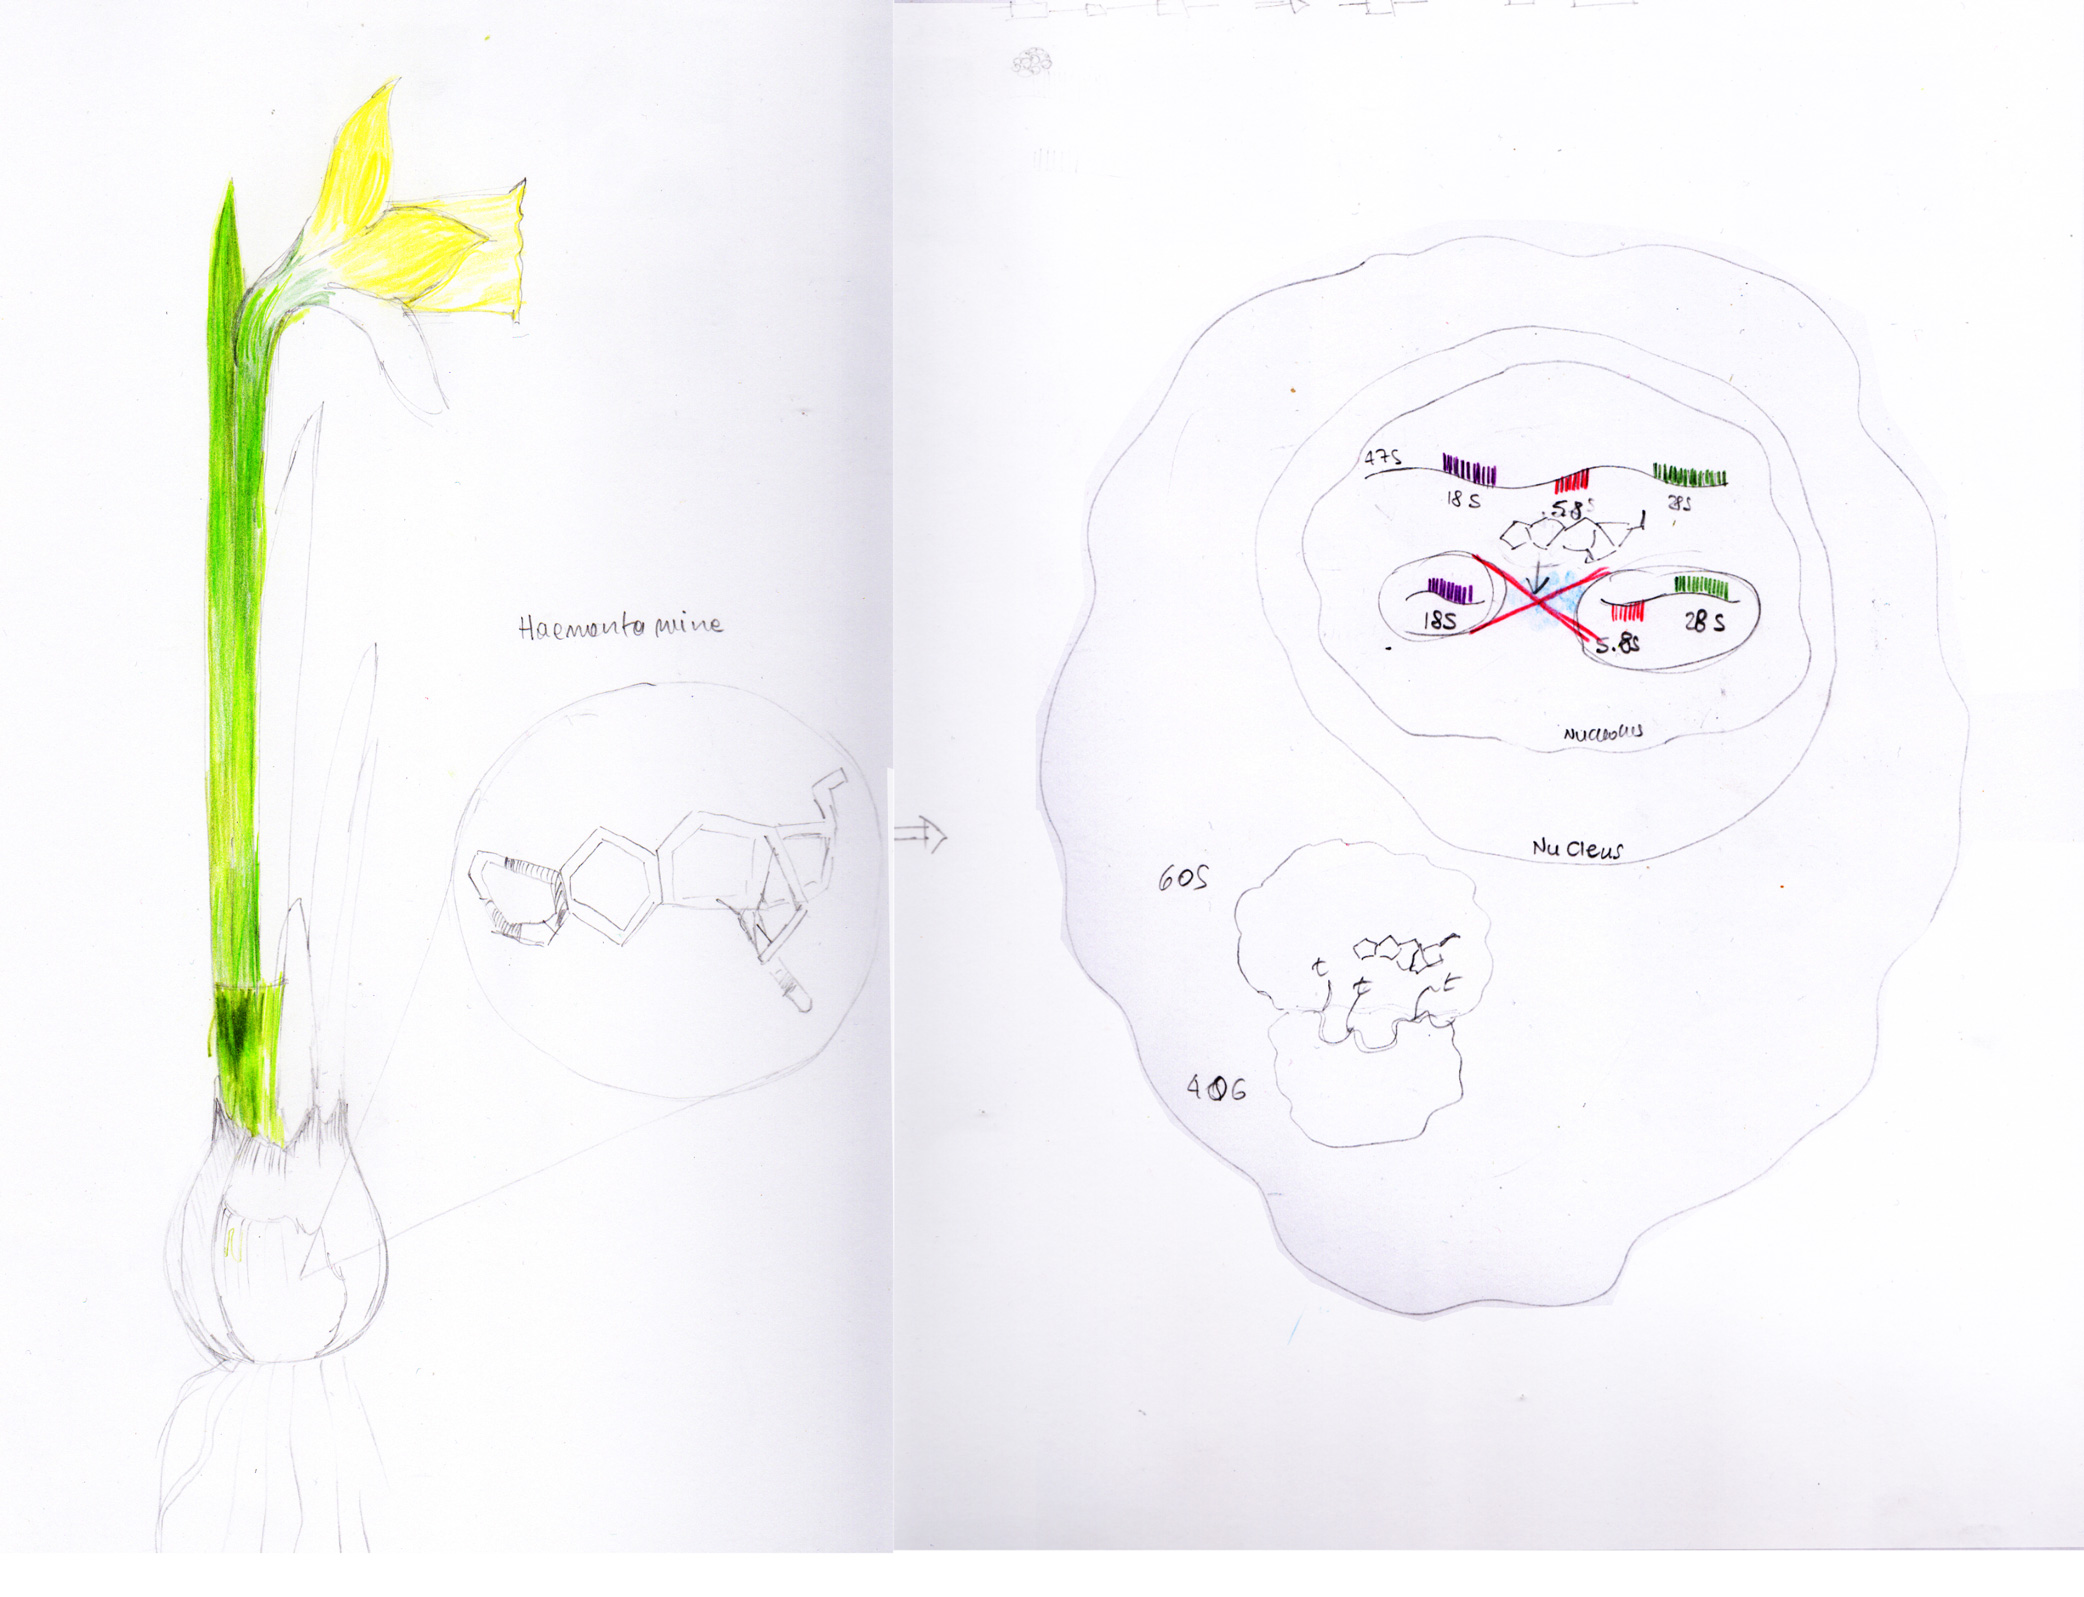 Haemantamine
47S
18S
5.8S
28S
18S
5.8S
28S
Nucleolus
Nucleus
60S
t
t
t
40S